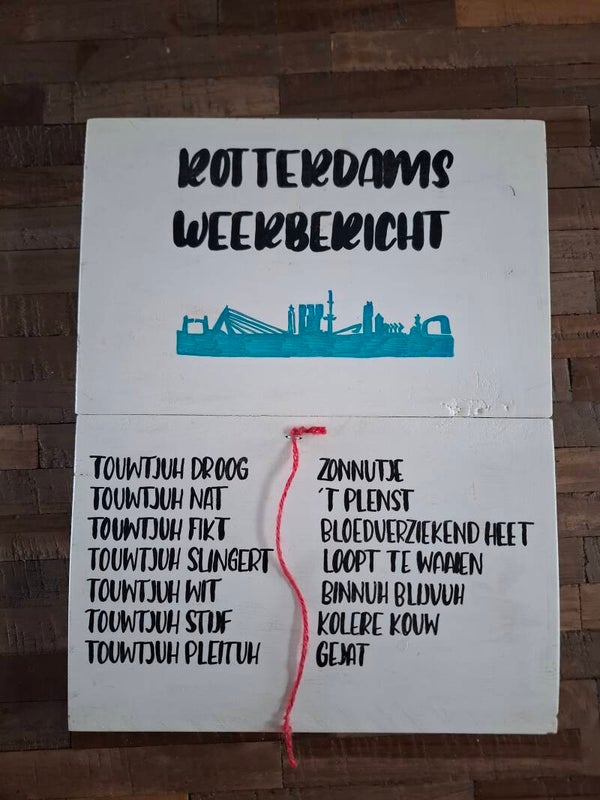 ROTTERDAMS
WEERBERICHT
TOUWTJUH DROOG ZONNUTJE
TOUWTJUH NAT 'T PLENST
TOUWTJUH FIKT BLOEDVERZIEKEND HEET
TOUWTJUH SLINGERT LOOPT TE WAAIEN
TOUWTJUH WIT BINNUH BLIJVUH
TOUWTJUH STIJF KOLERE KOUW
TOUWTJUH PLEITUH GEJAT